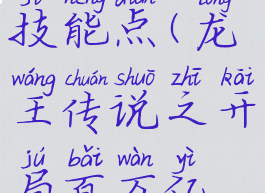 jì néng diǎn lóng
技能点(龙
wáng chuán shuō zhī kāi
王传说之开
jú bǎi wàn yì
局百万亿